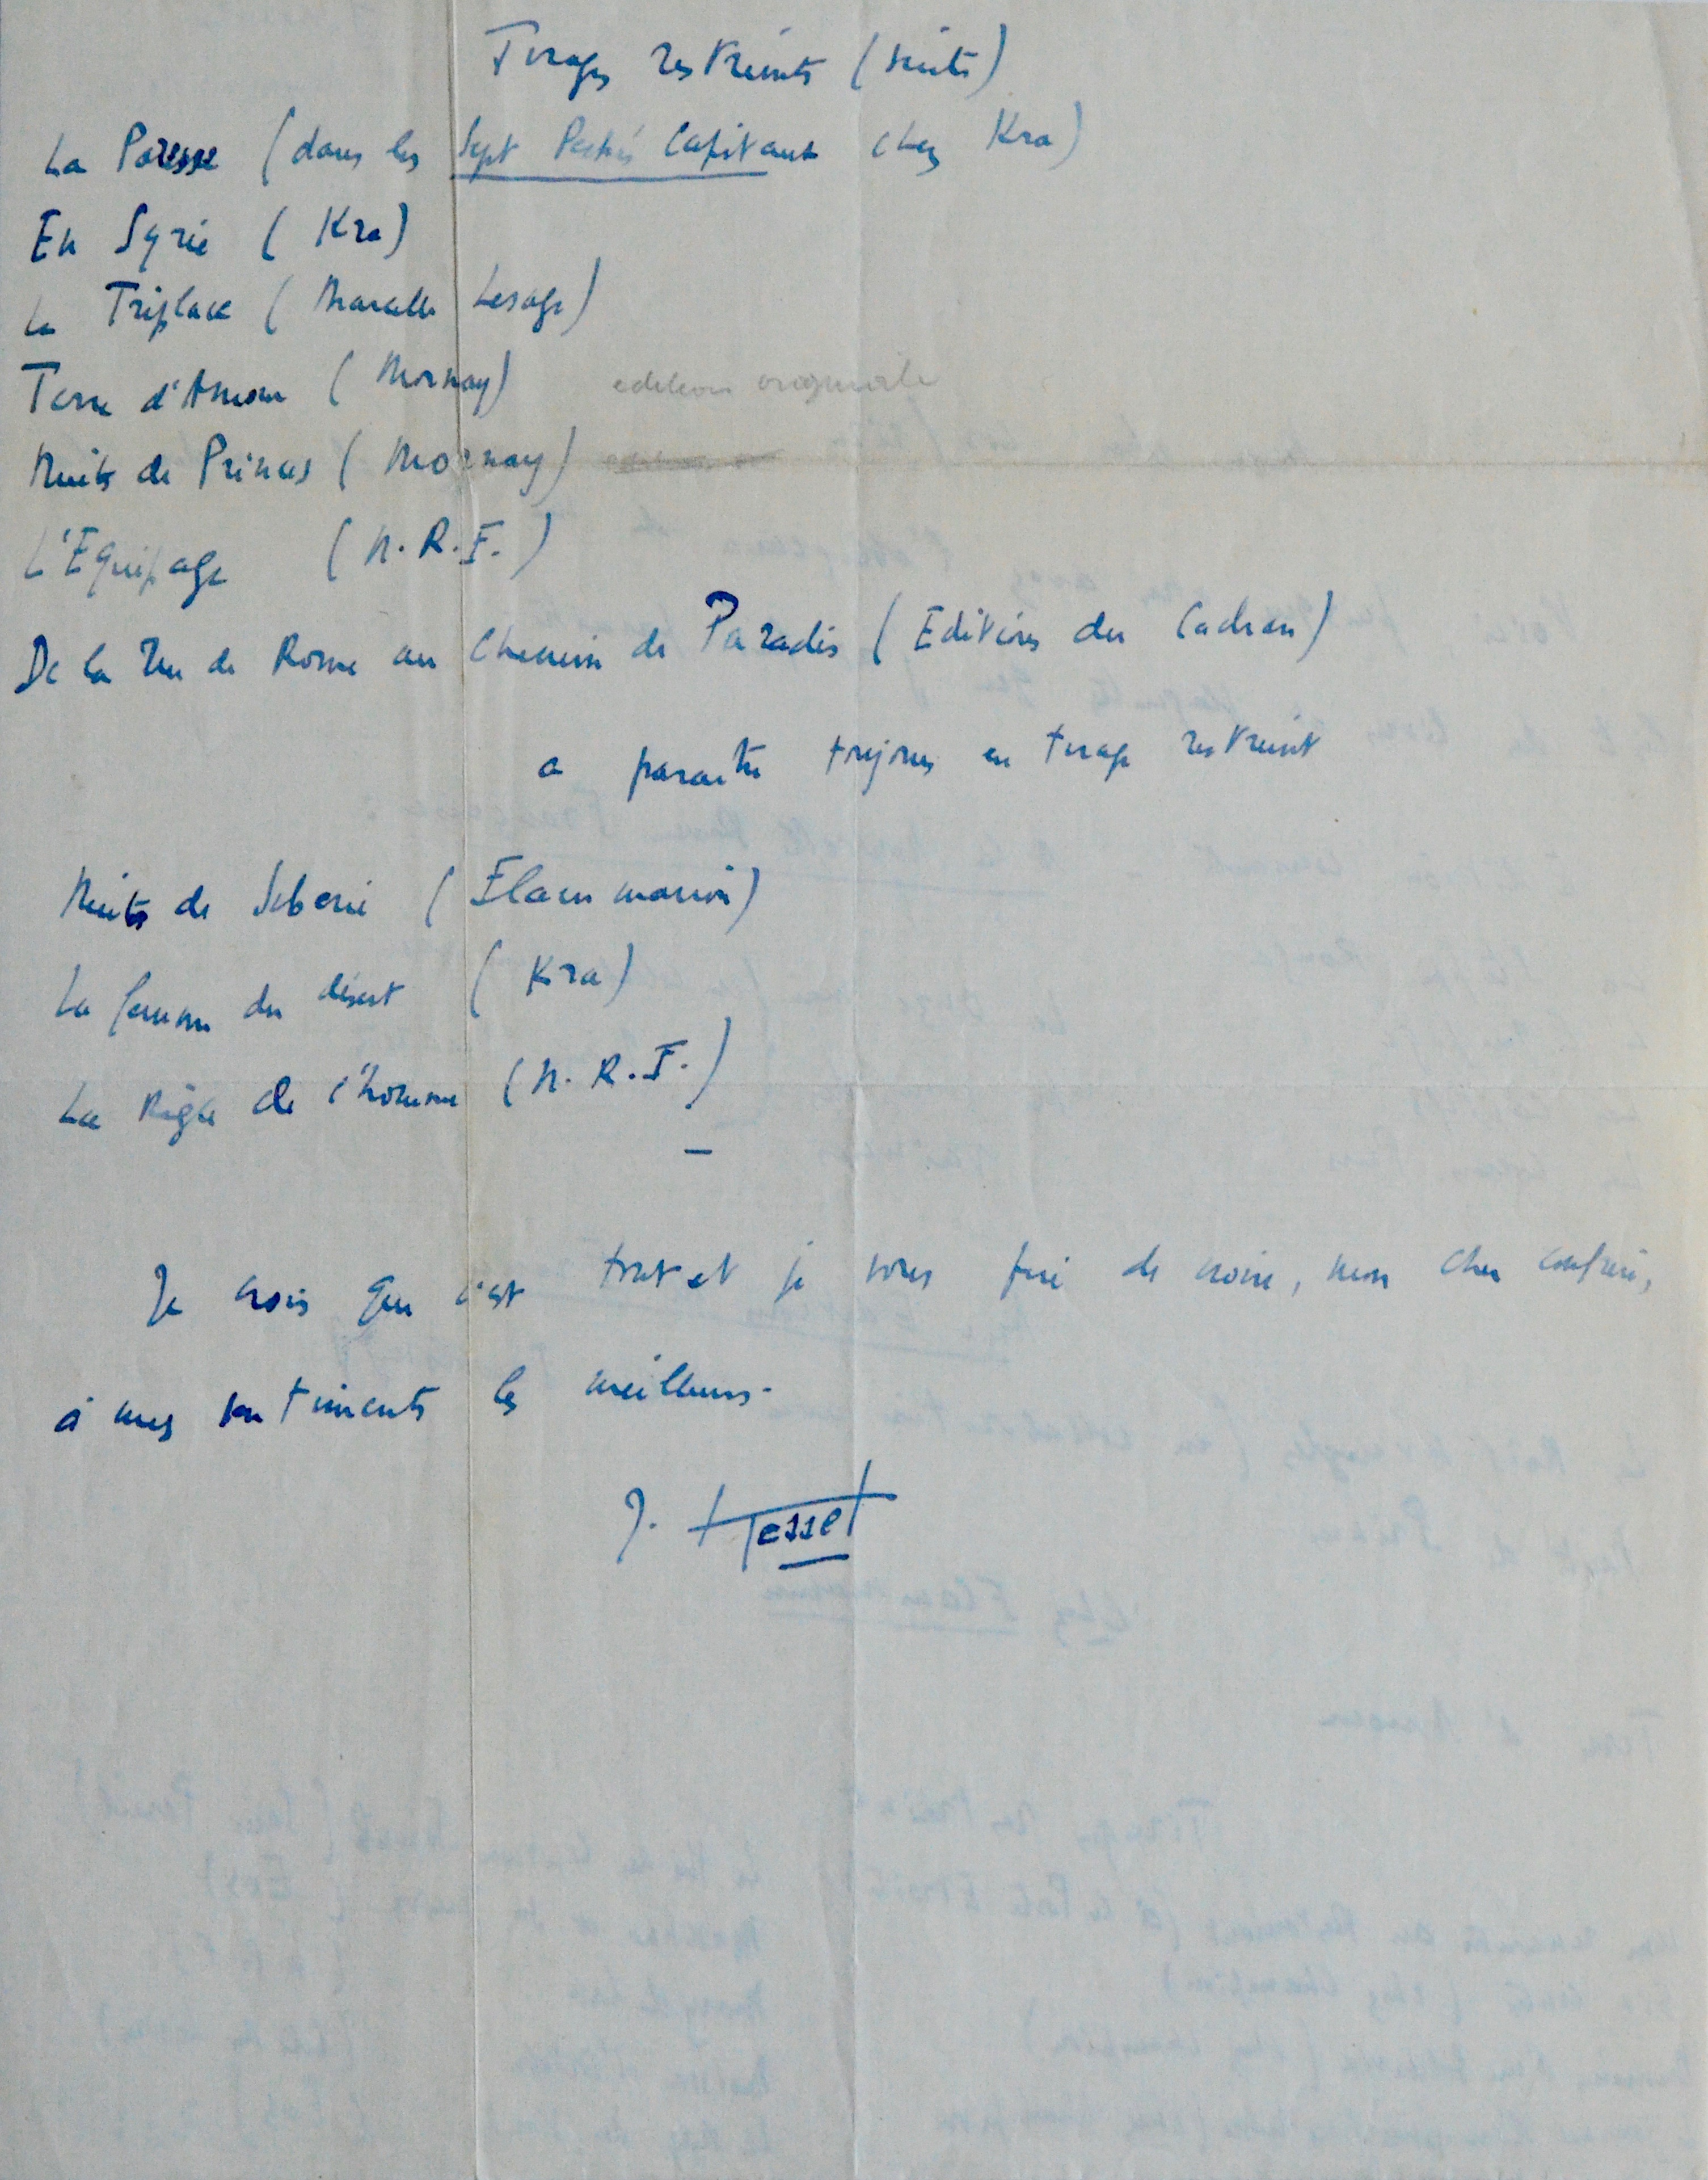 Tirages restreints (suite)
La Paresse (dans les Sept Péchés Capitaux chez Kra)
En Syrie (Kra)
Le Triplace (Marcelle Lesage)
Terre d'Amour (Mornay) edition originale
Nuits de Princes (Mornay)
L'Equipage (N.R.F.)
De la Rue de Rome au Chemin de Paradis (Editions du Cadran)
a paraitre toujours en tirage restreint
Nuits de Siberie (Flammarion)
La femme du désert (Kra)
La Règle de l'homme (N.R.F.)
—
Je crois que c'est tout et je vous prie de croire, mon cher confrère,
à mes sentiments les meilleurs.
J. Kessel